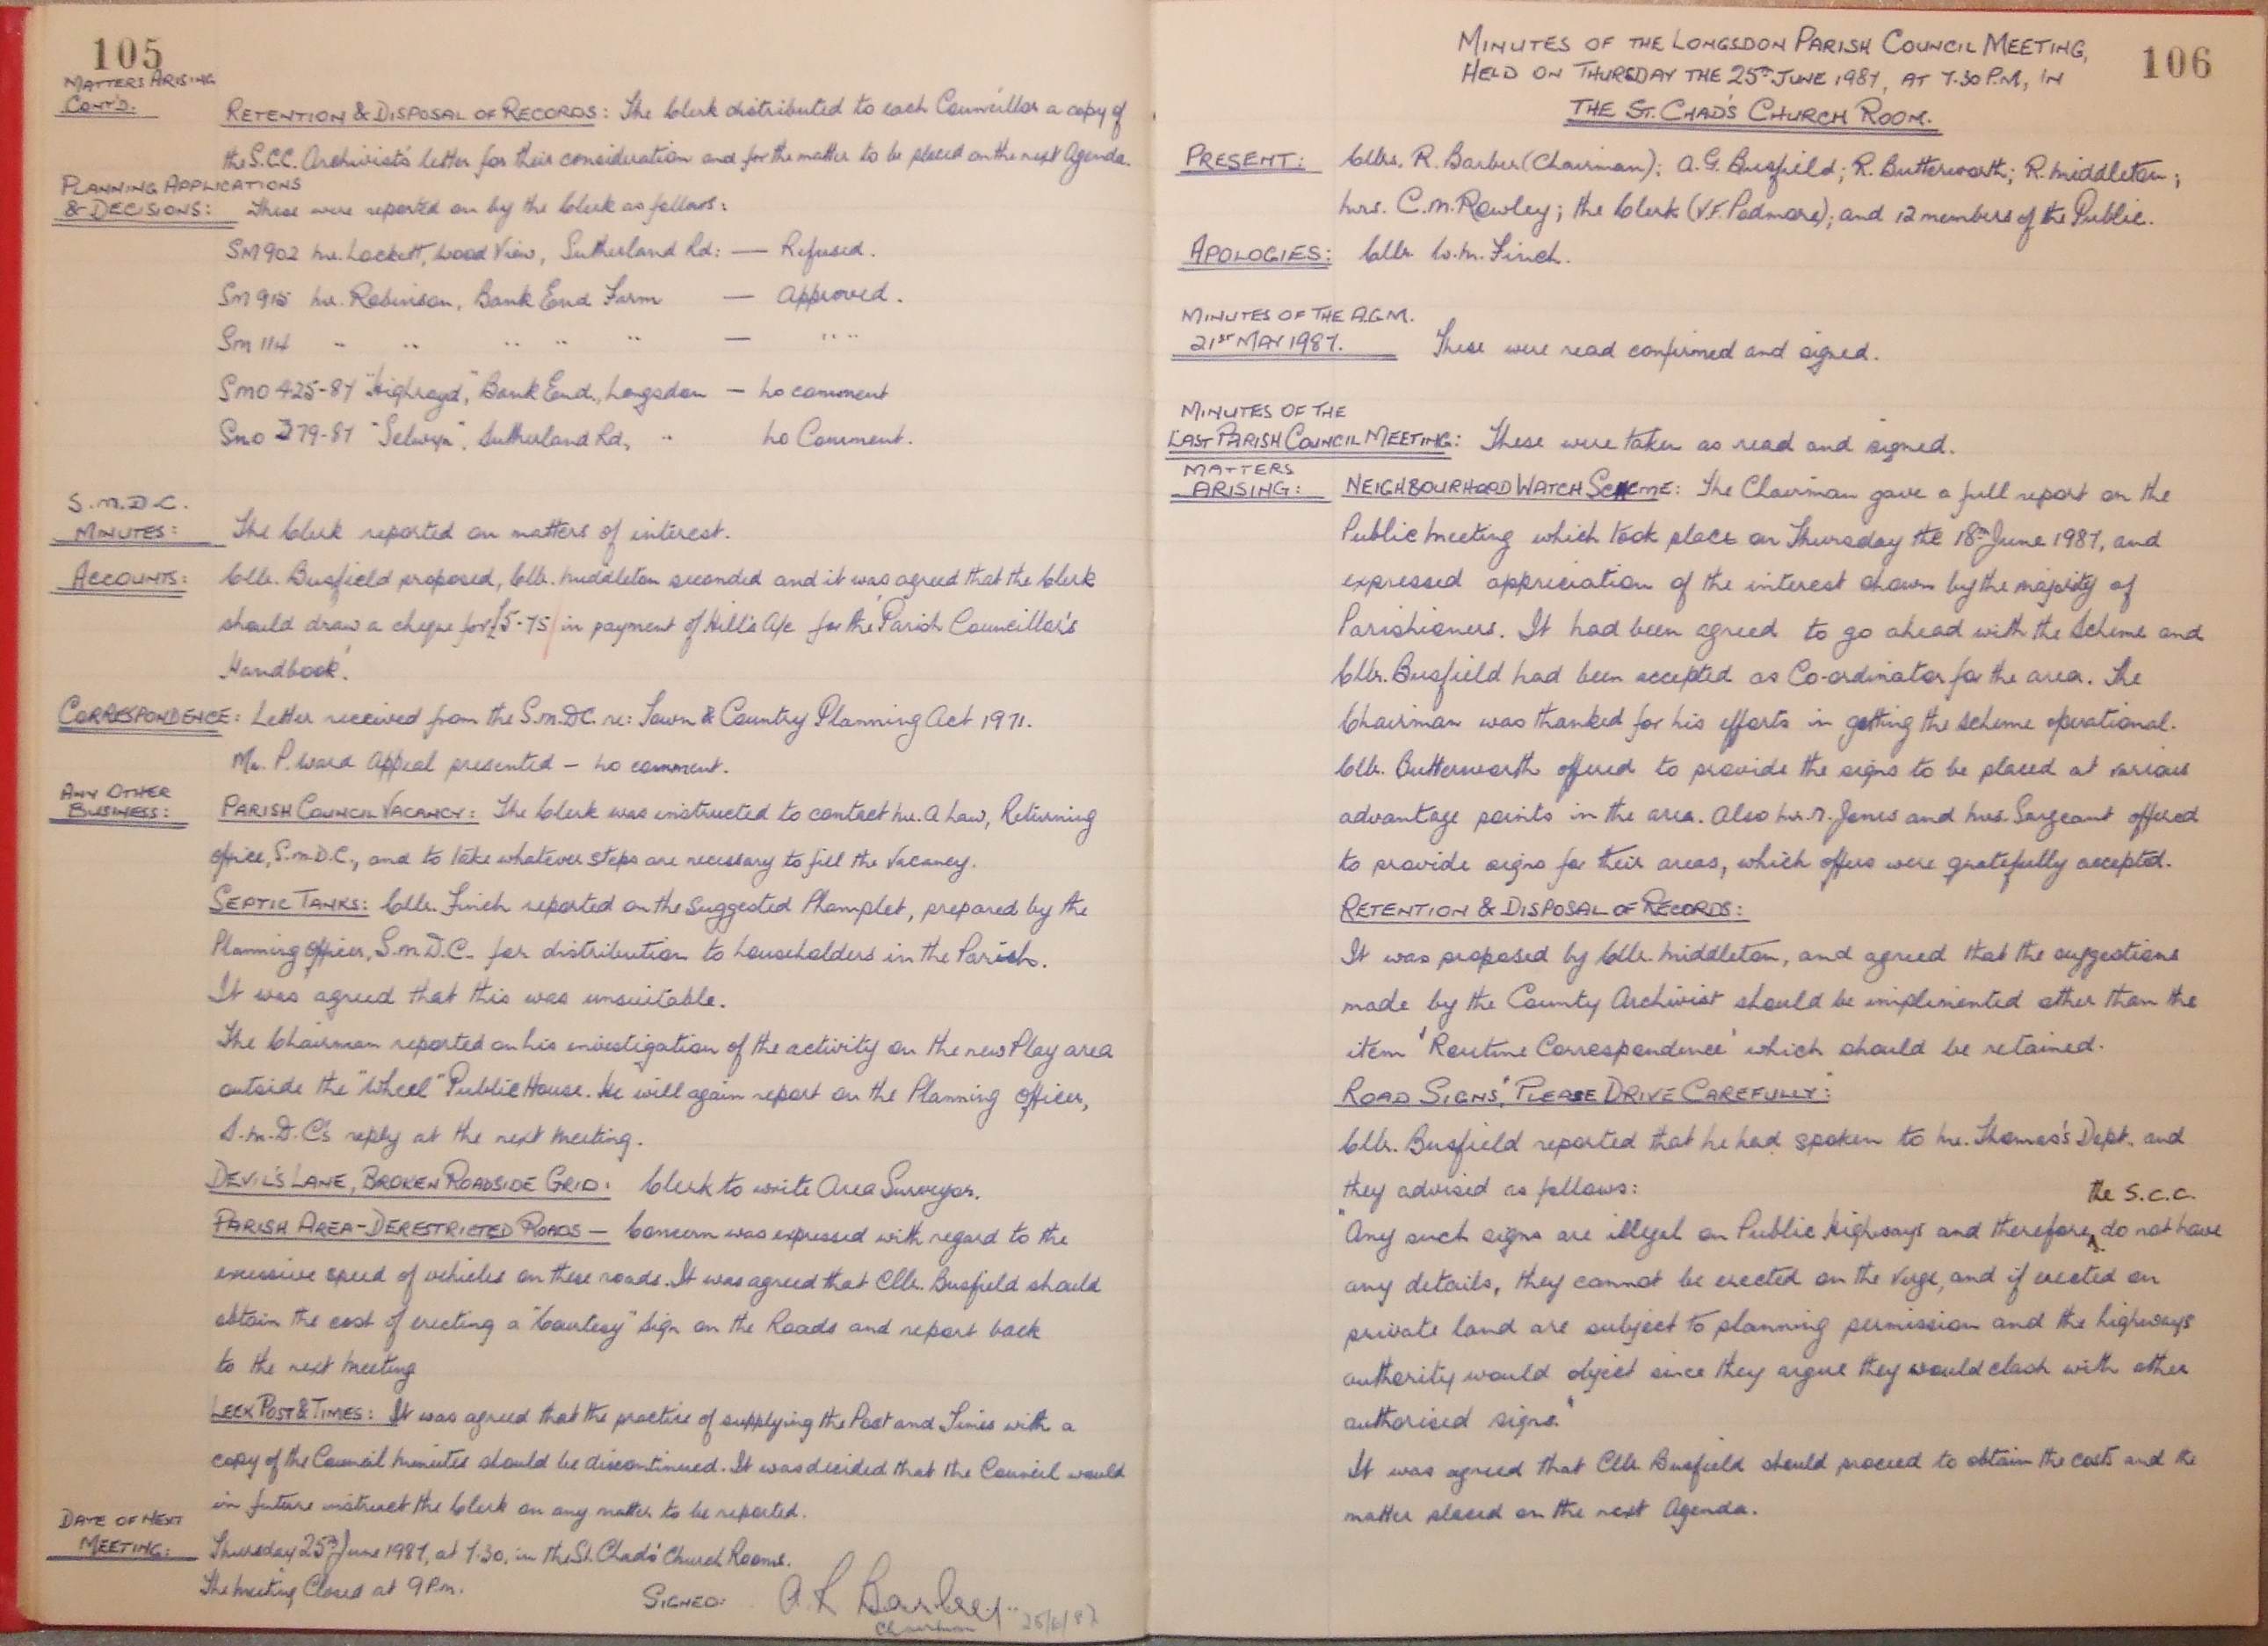 105
MATTERS ARISING
CONT'D.
RETENTION & DISPOSAL OF RECORDS: The Clerk distributed to each Councillor a copy of
the S.C.C. Archivist's letter for their consideration and for the matter to be placed on the next Agenda.
PLANNING APPLICATIONS
& DECISIONS: These were reported on by the Clerk as follows:
SM 902 Mr. Lockett, Wood View, Sutherland Rd: — Refused.
SM 915 Mr. Robinson, Bank End Farm — Approved.
SM 114 " " " " " — " "
SMO 425-87 "Highroyd", Bank End, Longsdon — No comment
SMO 379-87 "Selwyn", Sutherland Rd, " No Comment.
S.M.D.C.
MINUTES: The Clerk reported on matters of interest.
ACCOUNTS: Cllr. Busfield proposed, Cllr. Middleton seconded and it was agreed that the Clerk
should draw a cheque for £5-75 in payment of Hill's A/c for the 'Parish Councillor's
Handbook'.
CORRESPONDENCE: Letter received from the S.M.D.C. re: Town & Country Planning Act 1971.
Mr. P. Ward Appeal presented — No comment.
ANY OTHER
BUSINESS: PARISH COUNCIL VACANCY: The Clerk was instructed to contact Mr. A Law, Returning
Office, S.M.D.C., and to take whatever steps are necessary to fill the Vacancy.
SEPTIC TANKS: Cllr. Finch reported on the suggested Phamplet, prepared by the
Planning Officer, S.M.D.C. for distribution to householders in the Parish.
It was agreed that this was unsuitable.
The Chairman reported on his investigation of the activity on the new Play area
outside the "Wheel" Public House. He will again report on the Planning Officer,
S.M.D.C's reply at the next Meeting.
DEVIL'S LANE, BROKEN ROADSIDE GRID: Clerk to write Area Surveyor.
PARISH AREA-DERESTRICTED ROADS — Concern was expressed with regard to the
excessive speed of vehicles on these roads. It was agreed that Cllr. Busfield should
obtain the cost of erecting a "Courtesy" sign on the Roads and report back
to the next Meeting
LEEK POST & TIMES: It was agreed that the practice of supplying the Post and Times with a
copy of the Council Minutes should be discontinued. It was decided that the Council would
in future instruct the Clerk on any matter to be reported.
DATE OF NEXT
MEETING: Thursday 25th June 1987, at 7.30, in the St. Chads' Church Rooms.
The Meeting Closed at 9 P.m.
SIGNED: A R Barber
Chairman 25/6/87
MINUTES OF THE LONGSDON PARISH COUNCIL MEETING,
HELD ON THURSDAY THE 25TH JUNE 1987, AT 7.30 P.M, IN
THE ST. CHAD'S CHURCH ROOM.
106
PRESENT: Cllrs. R. Barber (Chairman); A.G. Busfield; R. Butterworth; R. Middleton;
Mrs. C.M. Rowley; the Clerk (V.F. Podmore); and 12 members of the Public.
APOLOGIES: Cllr. W.M. Finch.
MINUTES OF THE A.G.M.
21ST MAY 1987. These were read confirmed and signed.
MINUTES OF THE
LAST PARISH COUNCIL MEETING: These were taken as read and signed.
MATTERS
ARISING: NEIGHBOURHOOD WATCH SCHEME: The Chairman gave a full report on the
Public Meeting which took place on Thursday the 18th June 1987, and
expressed appreciation of the interest shown by the majority of
Parishioners. It had been agreed to go ahead with the Scheme and
Cllr. Busfield had been accepted as Co-ordinator for the area. The
Chairman was thanked for his efforts in getting the scheme operational.
Cllr. Butterworth offered to provide the signs to be placed at various
advantage points in the area. Also Mr. T. Jones and Mrs. Sargeant offered
to provide signs for their areas, which offers were gratefully accepted.
RETENTION & DISPOSAL OF RECORDS:
It was proposed by Cllr. Middleton, and agreed that the suggestions
made by the County Archivist should be implimented other than the
item 'Routine Correspondence' which should be retained.
ROAD SIGNS, "PLEASE DRIVE CAREFULLY":
Cllr. Busfield reported that he had spoken to Mr. Thomas's Dept. and
they advised as follows:
the S.C.C.
"Any such signs are illegal on Public Highways and therefore do not have
any details, they cannot be erected on the verge, and if erected on
private land are subject to planning permission and the highways
authority would object since they argue they would clash with other
authorised signs."
It was agreed that Cllr. Busfield should proceed to obtain the costs and the
matter placed on the next Agenda.